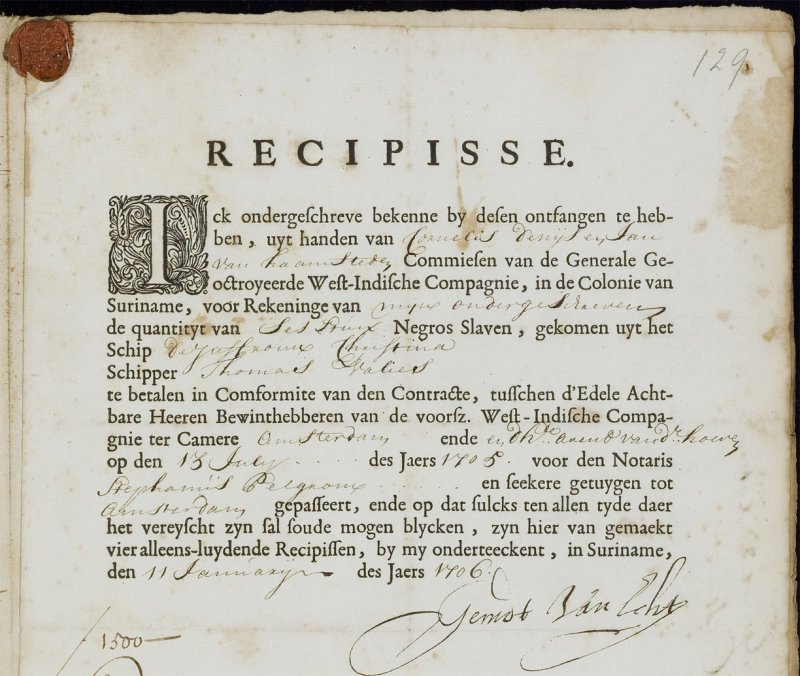 129
RECIPISSE.
Ick ondergeſchreve bekenne by deſen ontfangen te heb-
ben, uyt handen van Cornelis Denijs en Jan
van haamstede, Commieſen van de Generale Ge-
octroyeerde Weſt-Indiſche Compagnie, in de Colonie van
Suriname, voor Rekeninge van mijn ondergeschreven
de quantityt van Ses stux Negros Slaven, gekomen uyt het
Schip De Juffrouw Christina
Schipper Thomas Valies
te betalen in Comformite van den Contracte, tuſſchen d'Edele Acht-
bare Heeren Bewinthebberen van de voorſz. Weſt-Indiſche Compa-
gnie ter Camere Amsterdam ende arend vand.r hoeven
op den 15 July des Jaers 1705. voor den Notaris
Stephanus Pelgrom en ſeekere getuygen tot
Amsterdam gepaſſeert, ende op dat ſulcks ten allen tyde daer
het vereyſcht zyn ſal ſoude mogen blycken, zyn hier van gemaekt
vier alleens-luydende Recipiſſen, by my onderteeckent, in Suriname,
den 11 January des Jaers 1706.
Van Echt
1500